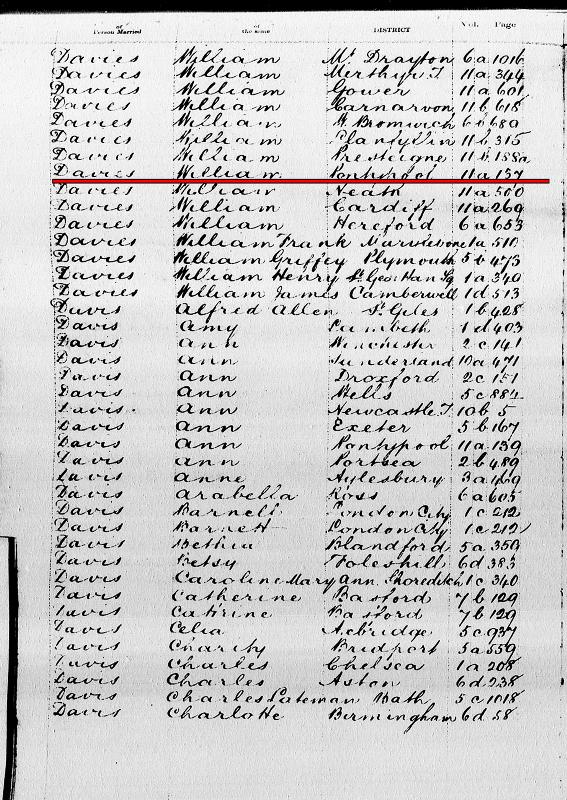 of of Vol. Page
Person Married the same DISTRICT
Davies William Mt. Drayton 6a 1016
Davies William Merthyr T. 11a 344
Davies William Gower 11a 601
Davies William Carnarvon 11b 618
Davies William W. Bromwich 6b 680
Davies William Llanfyllin 11b 315
Davies William Presteigne 11b 158a
Davies William Pontypool 11a 137
Davies William Neath 11a 500
Davies William Cardiff 11a 269
Davies William Hereford 6a 653
Davies William Frank 1a 510
Davies William Griffey Plymouth 5b 473
Davies William Henry St. Geo. Han. Sq. 1a 340
Davies William James Camberwell 1d 513
Davis Alfred Allen St. Giles 1b 428
Davis Amy Lambeth 1d 403
Davis Ann Winchester 2c 141
Davis Ann Sunderland 10a 471
Davis Ann Droxford 2c 151
Davis Ann Wells 5c 884
Davis Ann Newcastle T. 10b 5
Davis Ann Exeter 5b 167
Davis Ann Pontypool 11a 139
Davis Ann Portsea 2b 489
Davis Anne Aylesbury 3a
Davis Arabella Ross 6a 605
Davis Barnett London City 1c 212
Davis Barnett London City 1c 212
Davis Bethia Blandford 5a 359
Davis Betsy Foleshill 6d 383
Davis Caroline Mary Ann Shoreditch 1c 340
Davis Catherine Basford 7b 129
Davis Catrine Basford 7b 129
Davis Celia Axbridge 5c 937
Davis Charity Bridport 5a 559
Davis Charles Chelsea 1a 208
Davis Charles Aston 6d 238
Davis Charles Pateman Bath 5c 1018
Davis Charlotte Birmingham 6d 58